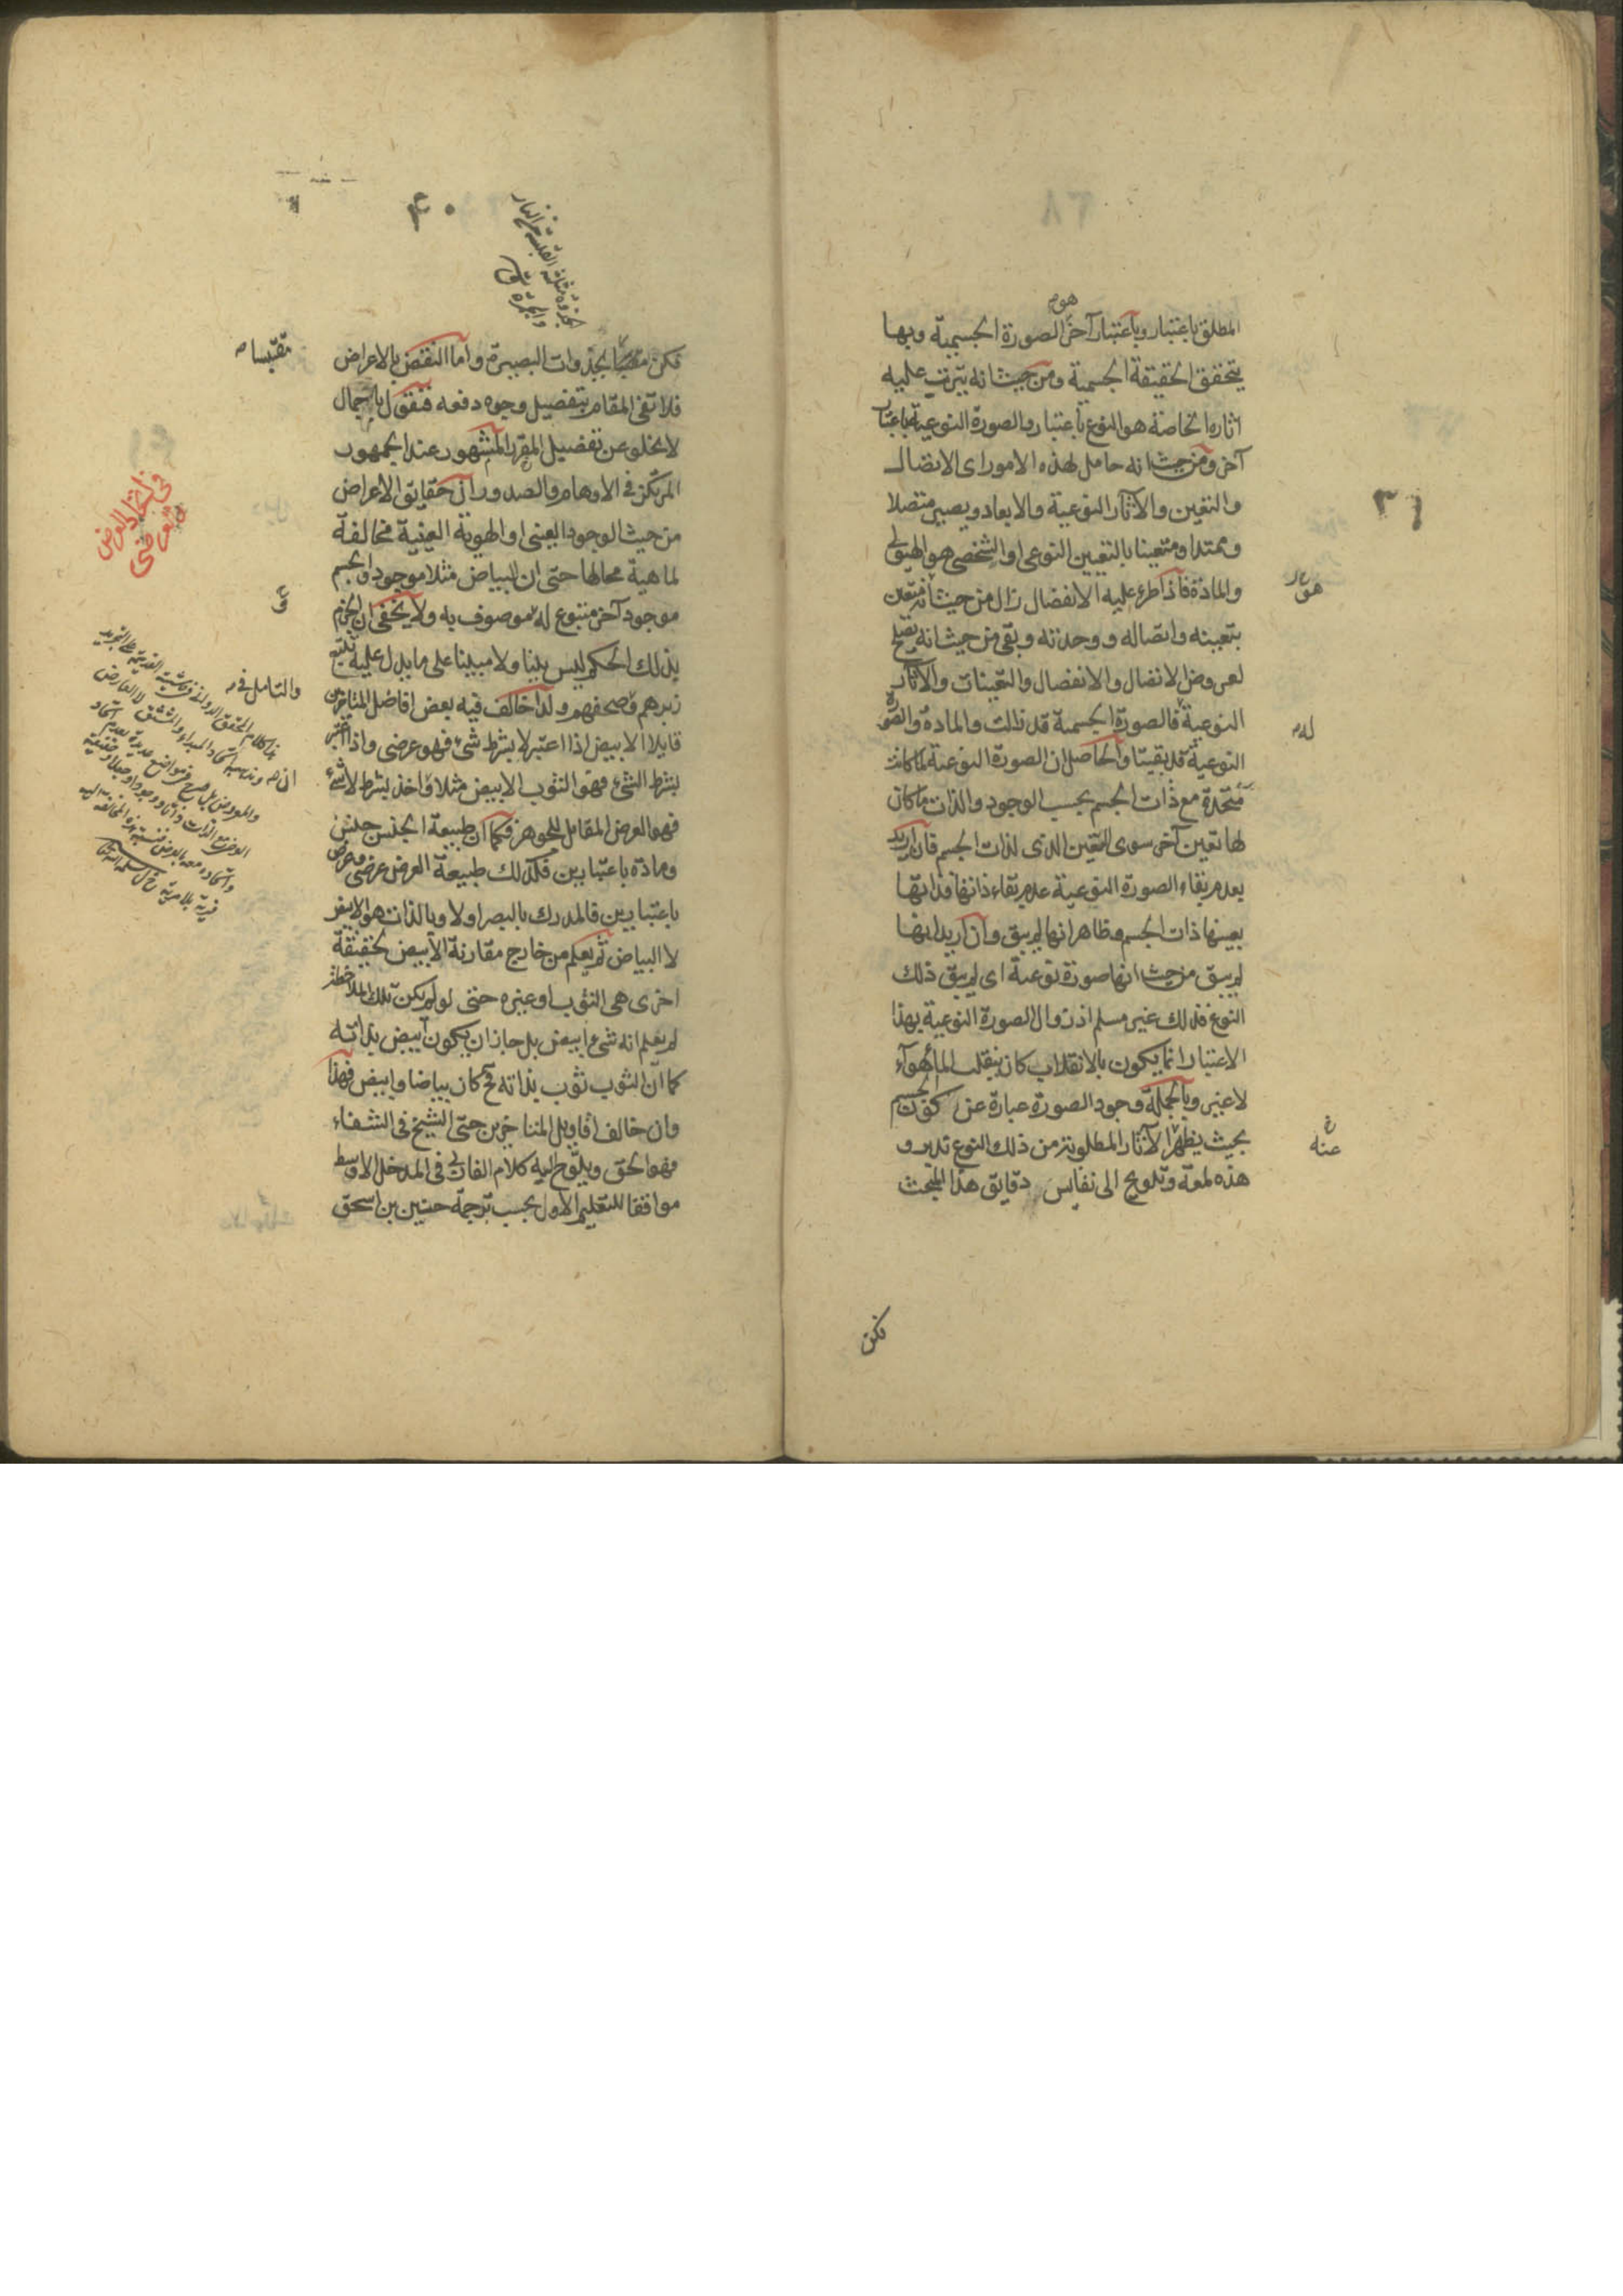 هو
المطلق باعتبار وباعتبار آخر الصورة الجسمية وبها
يتحقق الحقيقة الجسمية ومن حيث انه يترتب عليه
اثاره الخاصة هو النوع باعتبار والصورة النوعية باعتبار
آخر ومن حيث انه حامل لهذه الامور اى الاتصال
والتعين والآثار النوعية والابعاد ويصير متصلا
وممتدا ومتعينا بالتعيين النوعى او الشخصى هو الهيولى
والمادة فاذا طرء عليه الانفصال زال من حيث انه متعين
بتعينه واتصاله ووحدته وبقى من حيث انه يصلح
لعروض الاتصال والانفصال والتعينات والآثار
النوعية فالصورة الجسمية قد زالت والمادة والصورة
النوعية قد بقيتا والحاصل ان الصورة النوعية لما كانت
متحدة مع ذات الجسم بحسب الوجود والذات ما كان
لها تعين آخر سوى التعين الذى لذات الجسم فان اريد
بعدم بقاء الصورة النوعية عدم بقاء ذاتها فذاتها
بعينها ذات الجسم وظاهر انها لم يبق وان اريد انها
لم يبق من حيث انها صورة نوعية اى لم يبق ذلك
النوع فذلك غير مسلم اذ زوال الصورة النوعية بهذا
الاعتبار انما يكون بالانقلاب كان ينقلب الماء هوآء
لا غير وبالجملة وجود الصورة عبارة عن كون الجسم
بحيث يظهر الآثار المطلوبة من ذلك النوع تدبر و
هذه لمعة وتلويح الى نفايس دقايق هذا المبحث
هو
له
عنه
فكن
٣٩
٤٠
فكن مقتبسا بجذوات البصيرة واما النقض بالاعراض
فلا تفى المقام بتفصيل وجوه دفعه فنقول باجمال
لا يخلو عن تفصيل المقرر المشهور عند الجمهور
المرتكز فى الاوهام والصدور ان حقايق الاعراض
من حيث الوجود العينى او الهوية العينية مخالفة
لماهية محالها حتى ان البياض مثلا موجود والجسم
موجود آخر متبوع له موصوف به ولا يخفى ان الجزم
بذلك الحكم ليس بينا ولا مبينا على ما يدل عليه تتبع
زبرهم وصحفهم ولذا خالف فيه بعض افاضل المتاخرين
قايلا الابيض اذا اعتبر لا بشرط شىء فهو عرضى واذا اعتبر
بشرط الشىء فهو الثوب الابيض مثلا واخذ بشرط لا شىء
فهو العرض المقابل للجوهر فكما ان طبيعة الجنس جنس
ومادة باعتبارين فكذلك طبيعة العرض عرضى وعرض
باعتبارين فالمدرك بالبصر اولا وبالذات هو الابيض
لا البياض ثم يعلم من خارج مقارنة الابيض لحقيقة
اخرى هى الثوب او غيره حتى لو لم يكن تلك الملاحظة
لم يعلم انه شىء ابيض بل جاز ان يكون ابيض بذاته
كما ان الثوب ثوب بذاته فح كان بياضا وابيض فهذا
وان خالف اقاويل المتاخرين حتى الشيخ فى الشفاء
فهو الحق ويلوح اليه كلام الفارابى فى المدخل الاوسط
موافقا للتعليم الاول بحسب ترجمة حنين بن اسحق
مقتبسا
فى اتحاد العرض
مع العرضى
والتامل فى